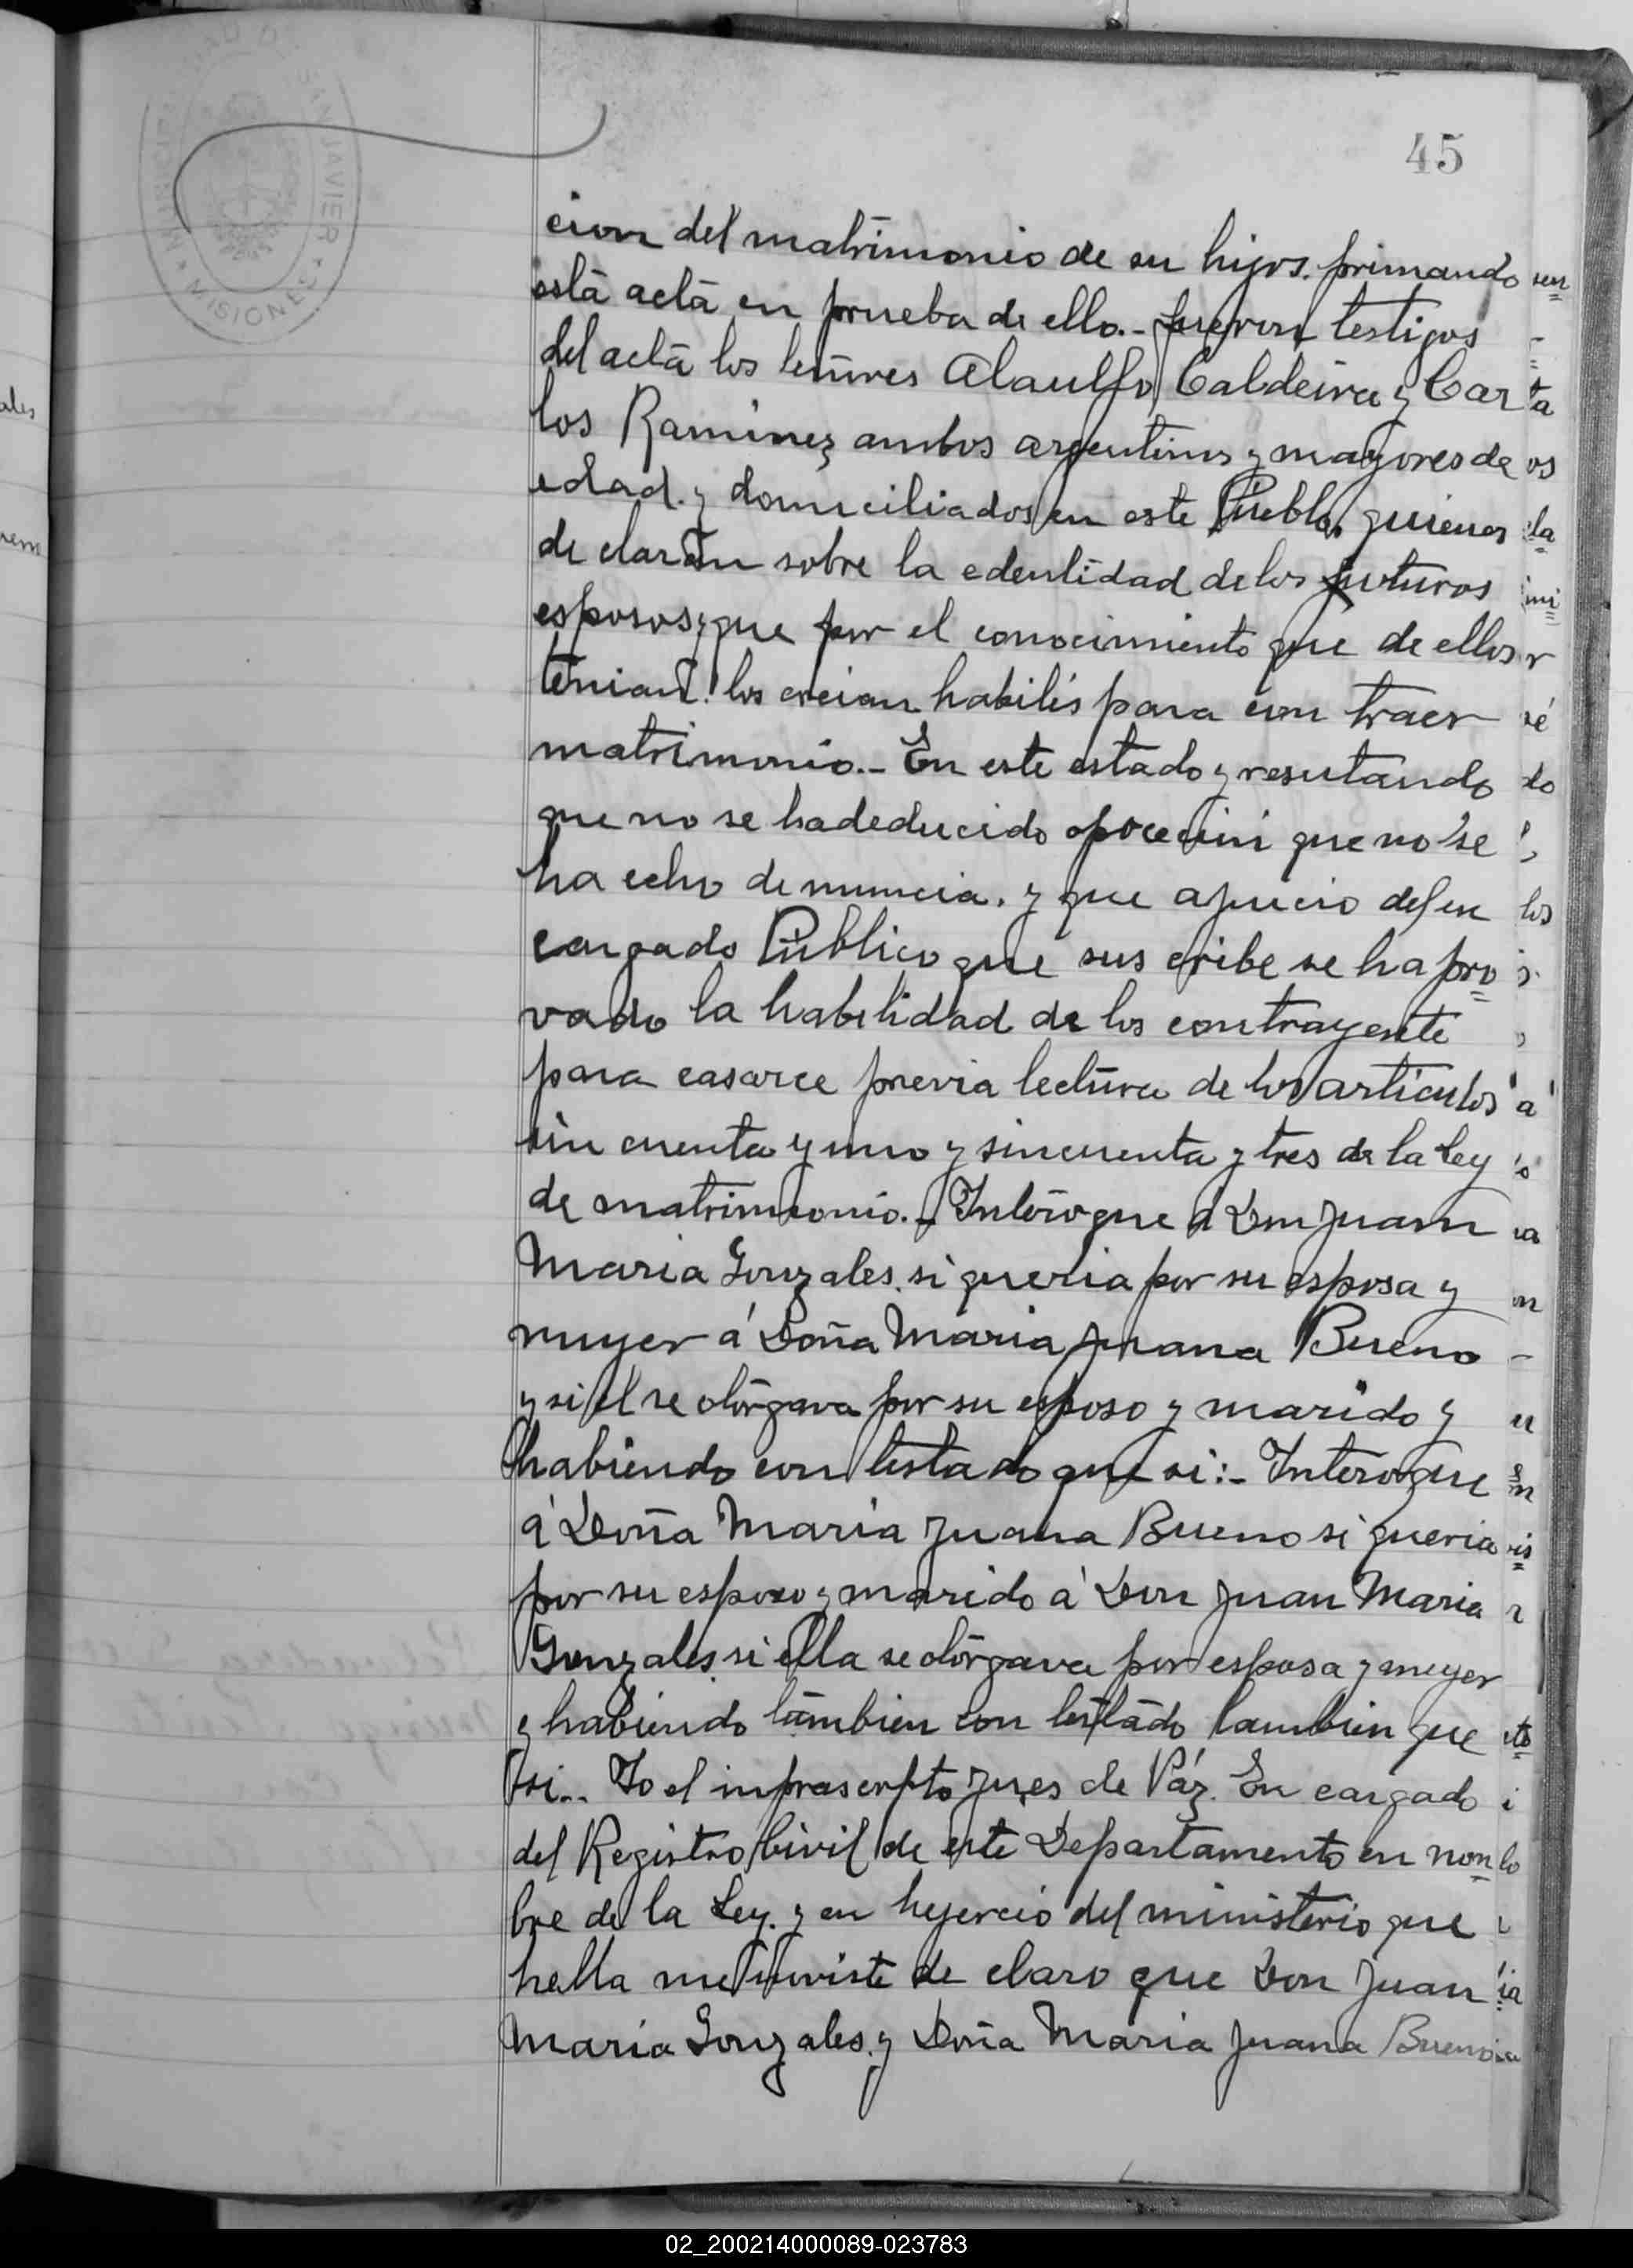 45
SAN JAVIER
MISIONES
cion del matrimonio de su hijos. primando
está actá en prueba de ello.- fueron testigos
del actá los señores Ataulfo Caldeira y Car
los Raminez ambos argentinos y mayores de
edad. y domiciliados en este Pueblo, quienes
de claran sobre la edentidad de los futuros
esposos, y que por el conocimiento que de ellos
tenian. los creian habilés para con traer
matrimonio.- En este estado y resutando
que no se hadeducido opocecini que no se
ha echo de nuncia. y que ajucio del en
cargado Público que sus cribe se ha pro
vado la habilidad de los contrayente
para casarce previa lectura de los artículos
sin cuenta y uno y sincuenta y tres de la Ley
de matrimonio.- Interogue á Don Juan
Maria Gonzales. si queria por su esposa y
muyer á Doña Maria Juana Bueno
y si el se otórgava por su esposo y marido y
habiendo con testado que si:- Interogue
á Doña Maria Juana Bueno si queria
por su esposo y marido á Don Juan Maria
Gonzales. si ella se otórgava por esposa y muyer
y habiendo támbien con testádo tambien que
si.. Yo el infrascrpto Jues de Páz. En cargado
del Registro Civil de este Departamento en non
bre de la Ley. y en hejercio del ministerio que
hella me inviste de claro que Don Juan
Maria Gonzales. y Doña Maria Juana Bueno
02_200214000089-023783